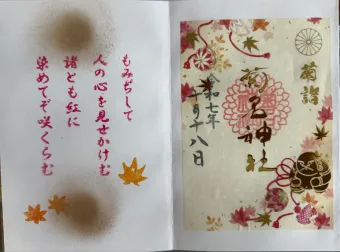 菊詣
菊名神社
令和七年
月十八日
もみぢして
人の心を見せかけむ
諸とも紅に
染めてぞ咲くらむ